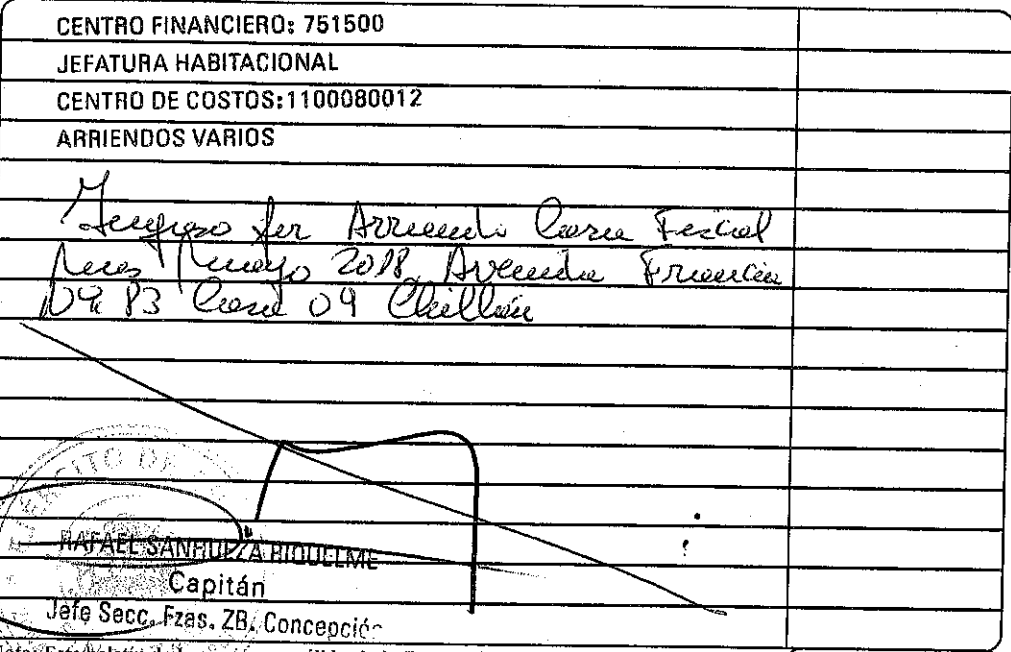 CENTRO FINANCIERO: 751500
JEFATURA HABITACIONAL
CENTRO DE COSTOS:1100080012
ARRIENDOS VARIOS
Ingreso por Arriendo Casa Fiscal
Mes Mayo 2018, Avenida Francia
Casa 09 Chillán
EJERCITO DE
RAFAEL SANHUEZA RIQUELME
Capitán
Jefe Secc. Fzas. ZB. Concepción